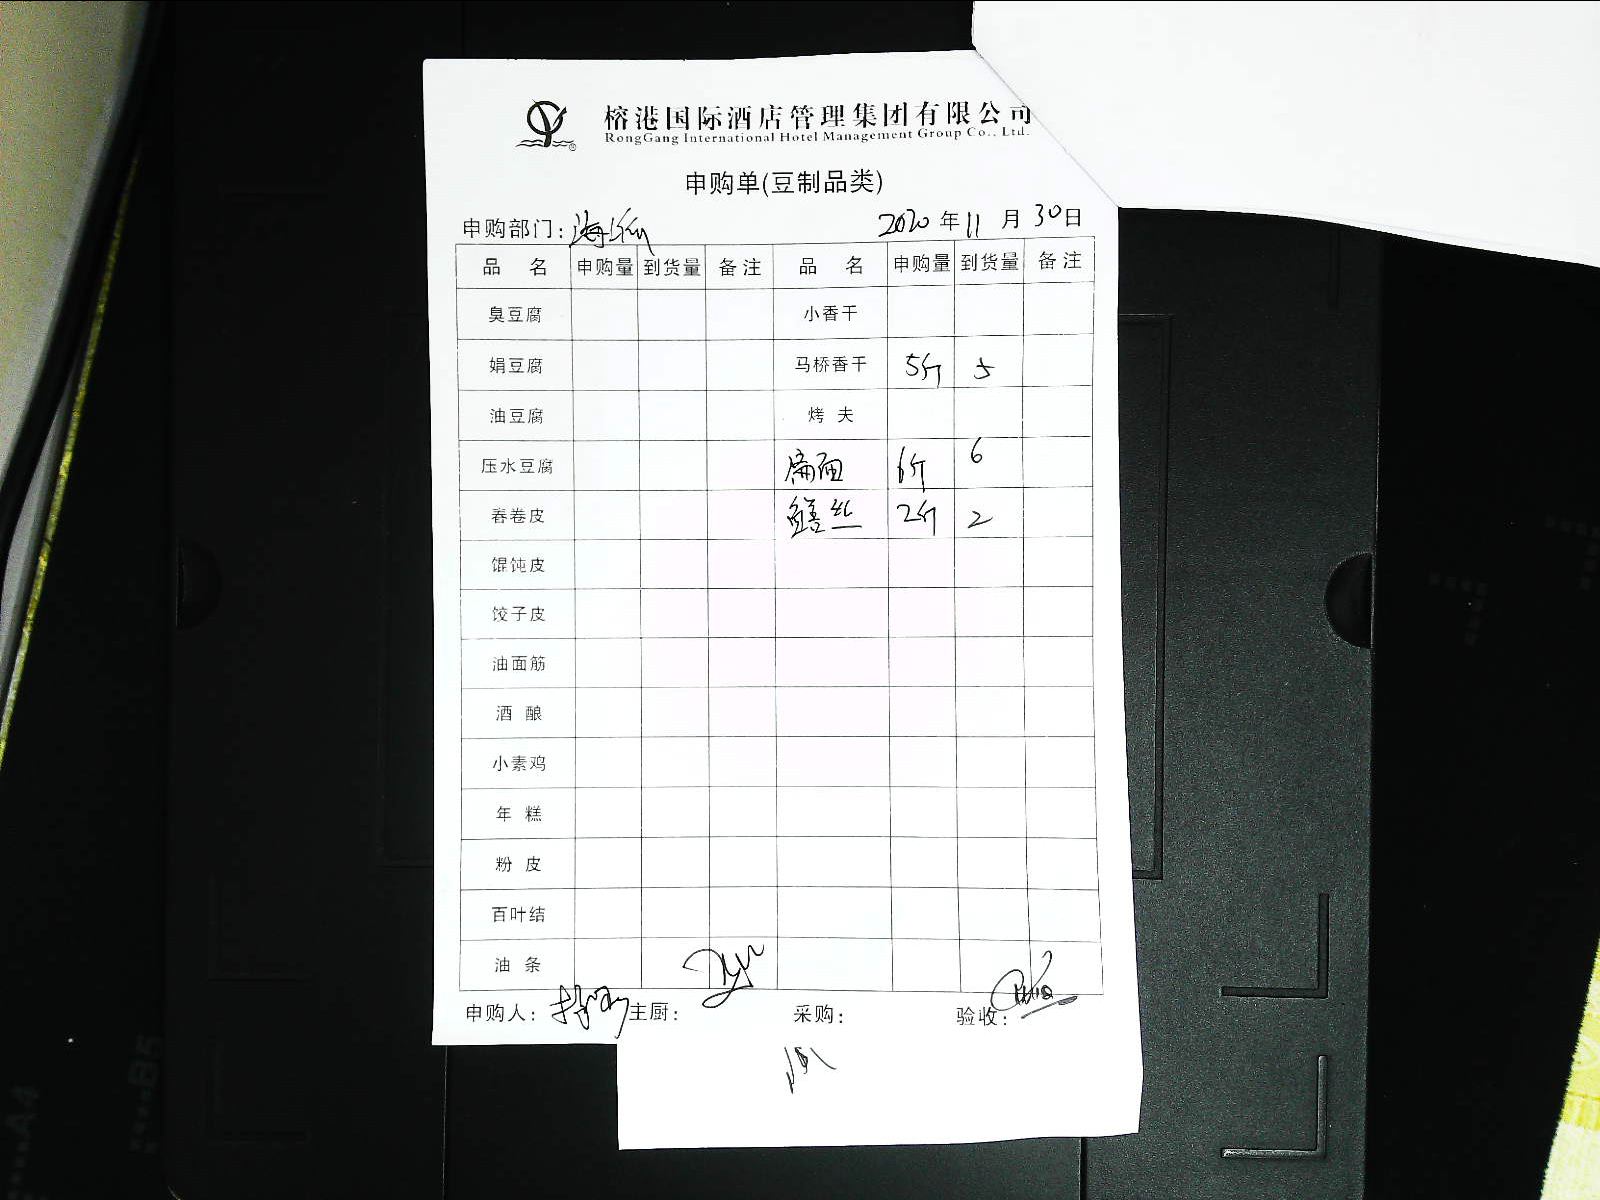 榕港国际酒店管理集团有限公司
RongGang International Hotel Management Group Co., Ltd.
申购单(豆制品类)
申购部门: 2020 年 11 月 30日
品 名 申购量 到货量 备注 品 名 申购量 到货量 备注
臭豆腐 小香干
娟豆腐 马桥香干 5斤 5
油豆腐 烤 夫
压水豆腐 扁面 6斤 6
春卷皮 鳝丝 2斤 2
馄饨皮
饺子皮
油面筋
酒 酿
小素鸡
年 糕
粉 皮
百叶结
油 条
申购人: 主厨: 采购: 验收: